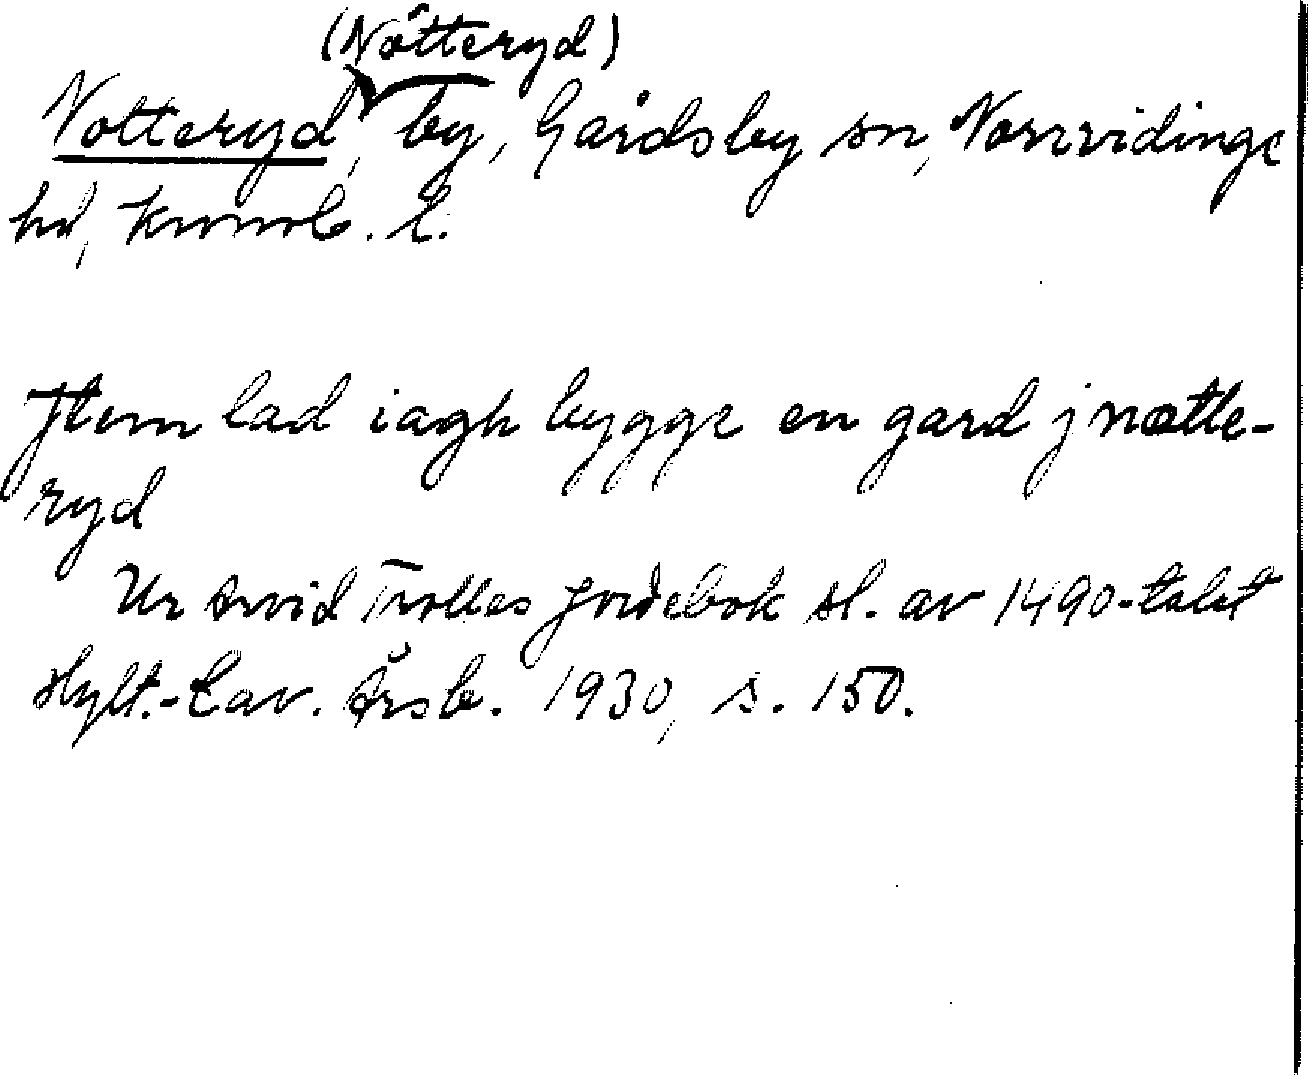 (Nötteryd)
Notteryd, by, Gårdsby sn, Norrvidinge
hd, Kronob. l.
Jtem lad iagh bygge en gard j nøtte-
ryd
Ur Arvid Trolles Jordebok sl. av 1490-talet
Hylt.-Cav. Årsb. 1930, s. 150.